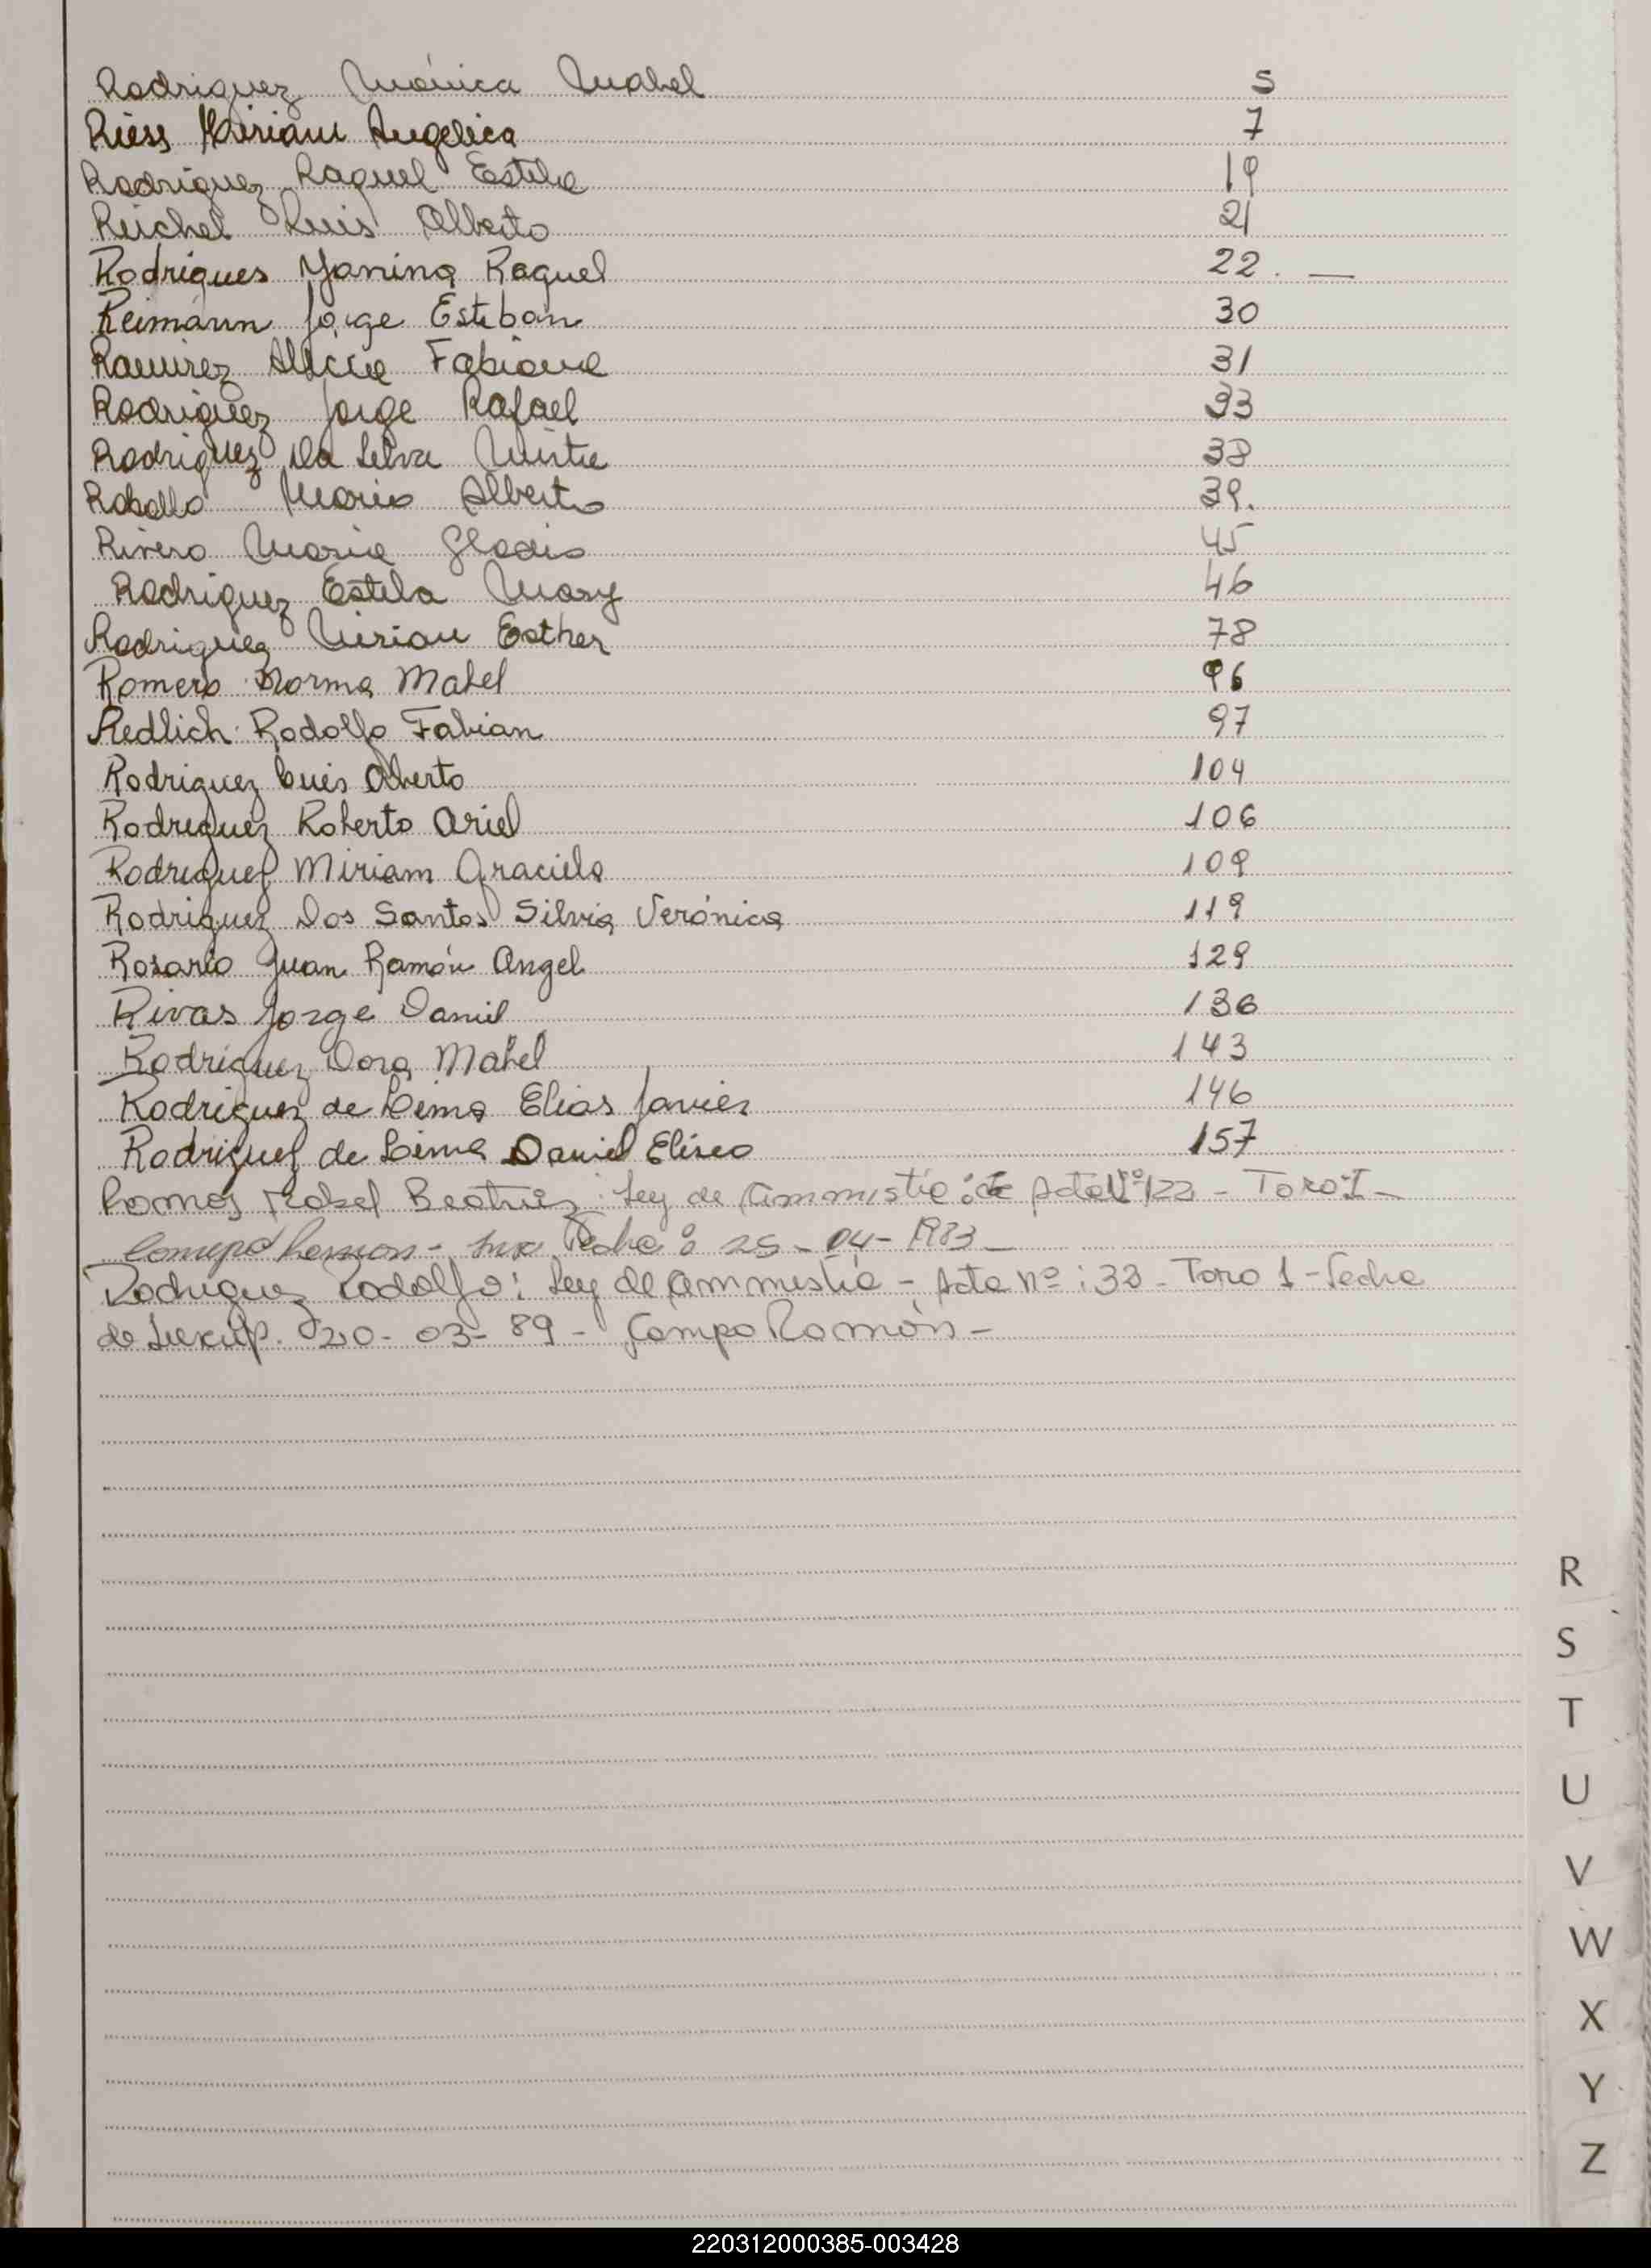 Rodriguez Mónica Mabel 5
Riess Miriam Angelica 7
Rodriguez Raquel Estela 19
Reichel Luis Alberto 21
Rodrigues Yanina Raquel 22. —
Reimann Jorge Esteban 30
Ramirez Alicia Fabiana 31
Rodriguez Jorge Rafael 33
Rodriguez Da Silva Mirta 38
Robello Mario Alberto 39.
Rivero Maria Gladis 45
Rodriguez Estela Mary 46
Rodriguez Mirian Esther 78
Romero Norma Mabel 96
Redlich Rodolfo Fabian 97
Rodriguez Luis Alberto 104
Rodriguez Roberto Ariel 106
Rodriguez Miriam Graciela 109
Rodriguez Dos Santos Silvia Verónica 119
Rosario Juan Ramón Angel 129
Rivas Jorge Daniel 136
Rodriguez Dora Mabel 143
Rodriguez de Lima Elias Javier 146
Rodriguez de Lima Daniel Eliseo 157
Ramos Isabel Beatriz: Ley de Ammistia: Acta Nº 122 - Tomo I -
Campo Ramon - Fecha: 25-04-1983
Rodriguez Rodolfo: Ley de Ammistia - Acta nº: 33 - Tomo 1 - Fecha
de Inscrip. 20-03-89 - Campo Ramón -
R
S
T
U
V
W
X
Y
Z
220312000385-003428